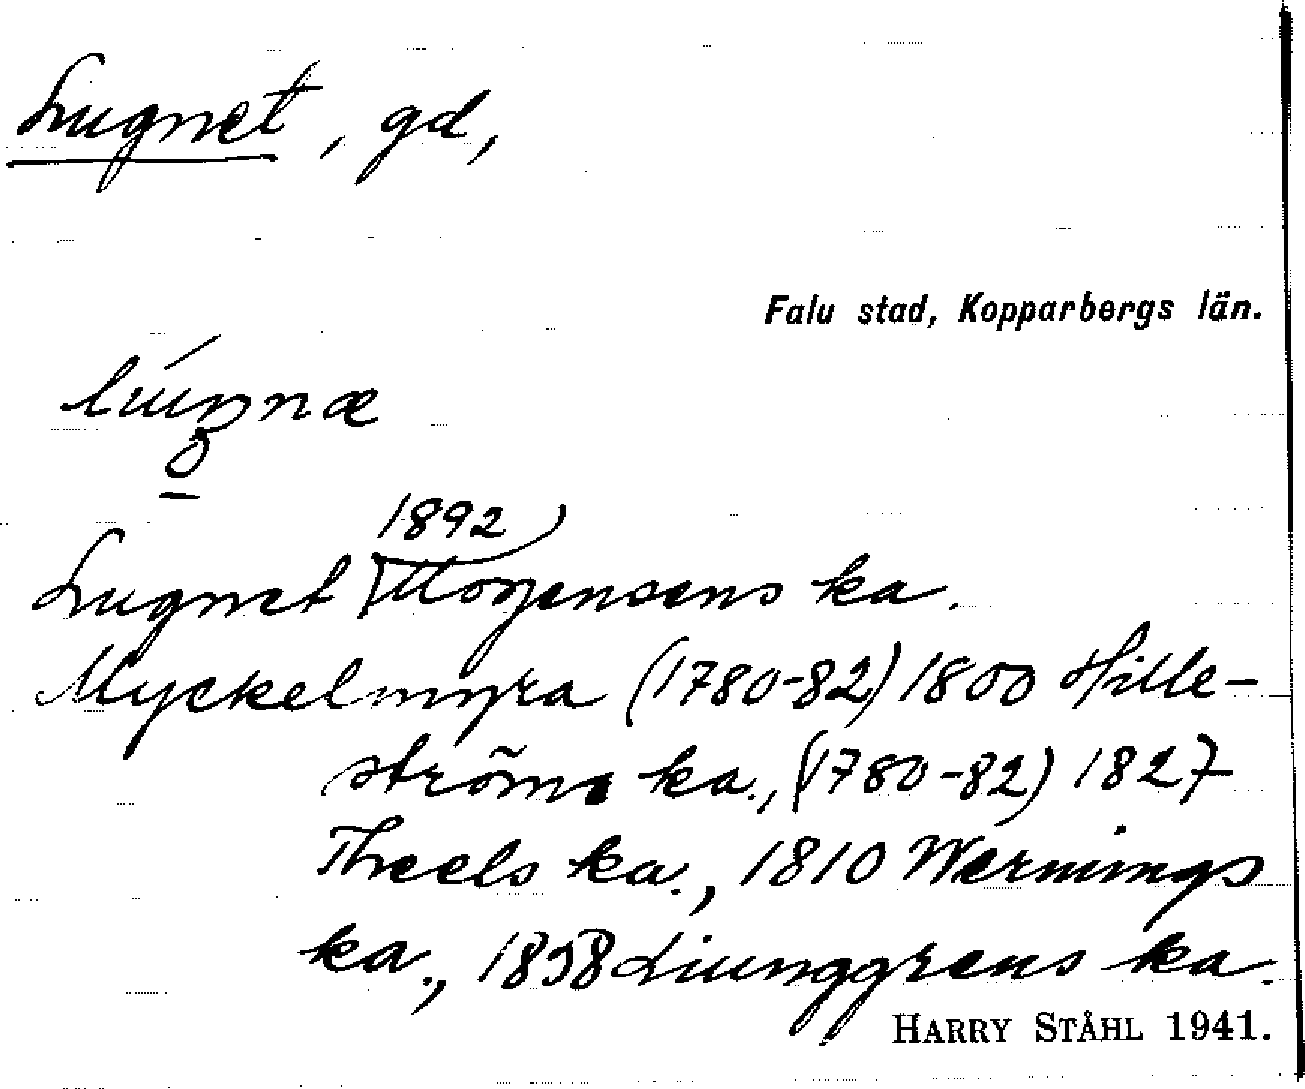 Lugnet, gd,
Falu stad, Kopparbergs län.
1892
Lugnet Mogensens ka.
Myckelmyra (1780-82) 1800 Hille-
ströms ka., (1780-82) 1827
Theels ka., 1810 Wernings
ka., 1858 Liunggrens ka.
HARRY STÅHL 1941.